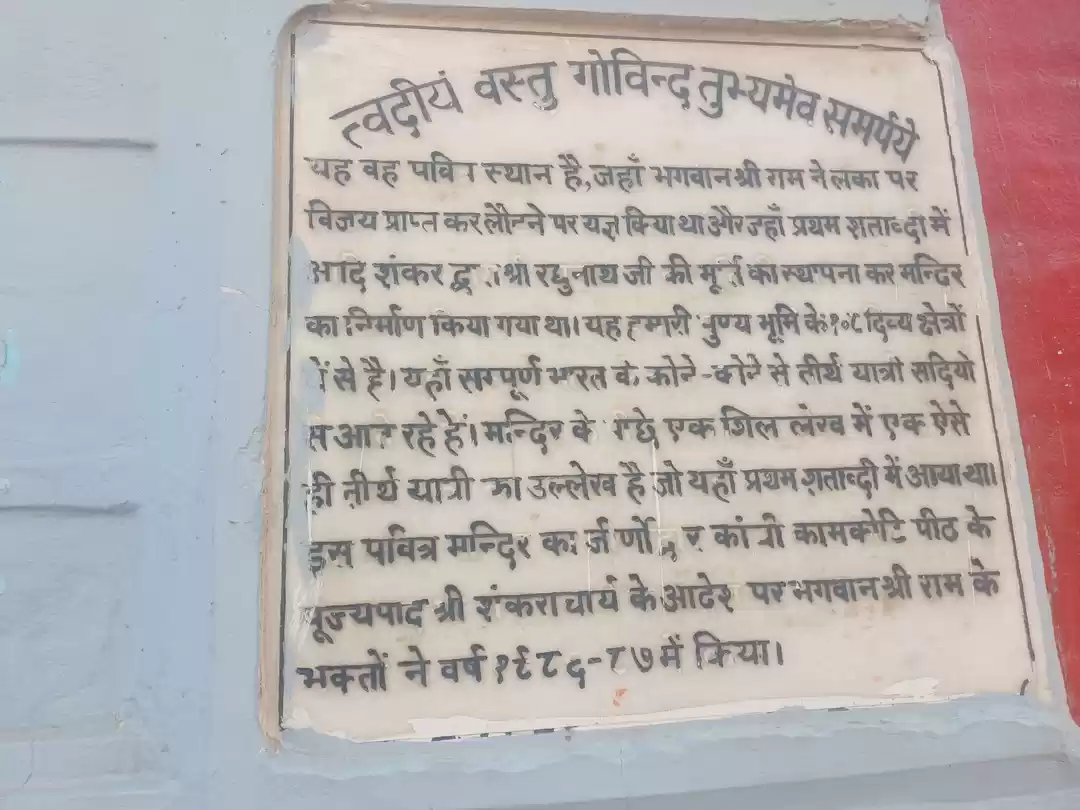 त्वदीयं वस्तु गोविन्द तुभ्यमेव समर्पये
यह वह पवित्र स्थान है, जहाँ भगवान श्री राम ने लंका पर
विजय प्राप्त कर लौटने पर यज्ञ किया था और जहाँ प्रथम शताब्दी में
आदि शंकर द्वारा श्री रघुनाथ जी की मूर्ति की स्थापना कर मन्दिर
का निर्माण किया गया था। यह हमारी पुण्य भूमि के १०८ दिव्य क्षेत्रों
में से है। यहाँ सम्पूर्ण भारत के कोने-कोने से तीर्थ यात्री सदियों
से आते रहे हैं। मन्दिर के पीछे एक शिला लेख में एक ऐसे
ही तीर्थ यात्री का उल्लेख है जो यहाँ प्रथम शताब्दी में आया था।
इस पवित्र मन्दिर का कांची कामकोटि पीठ के
पूज्यपाद श्री शंकराचार्य के आदेश पर भगवान श्री राम के
भक्तों ने वर्ष १९८६-८७ में किया।